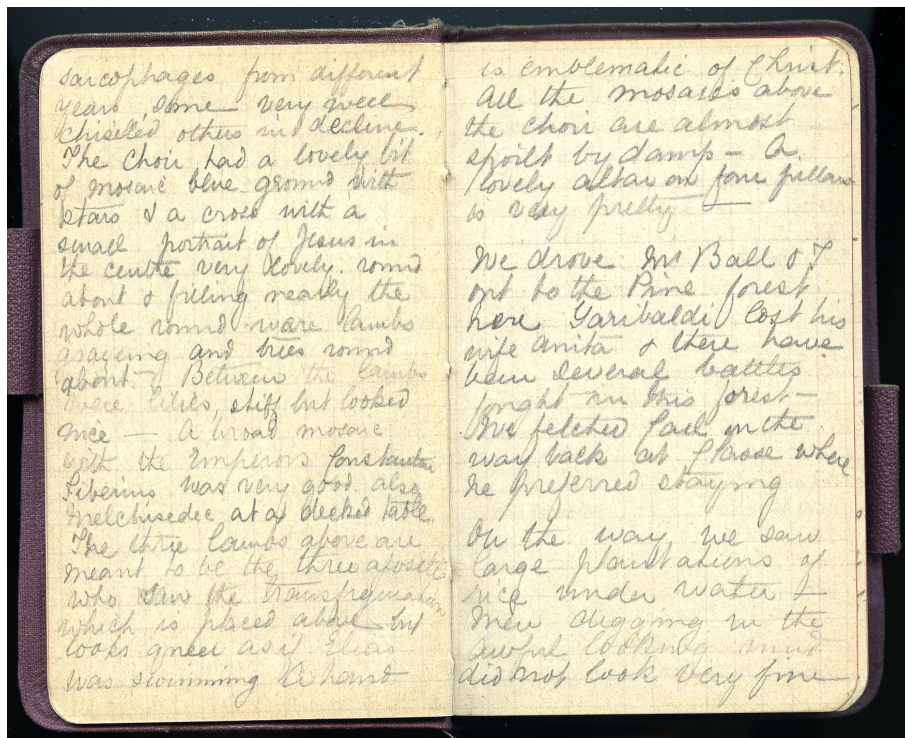 sarcophages from different
years, some very well
chiselled others in decline.
The choir had a lovely bit
of mosaic blue ground with
stars & a cross with a
small portrait of Jesus in
the centre very lovely. round
about & filling nearly the
whole round were lambs
and trees round
about - Between the lambs
were lilies, stiff but looked
nice — A broad mosaic
with the Emperors Constantin
Tiberius was very good also
Melchisedec at a decked table
The three lambs above are
meant to be the three apostles
who saw the transfiguration
which is placed above but
looks queer as if Elias
was swimming A hand
is emblematic of Christ.
All the mosaics above
the choir are almost
spoilt by damp - A
lovely altar on four pillars
is very pretty —
We drove Mr Ball & I
out to the Pine forest
here Garibaldi lost his
wife Anita & there have
been several battles
fought in this forest -
We fetched in the
way back at Classe where
he preferred staying
On the way we saw
large plantations of
rice under water &
men digging in the
awful looking mud
did not look very fine